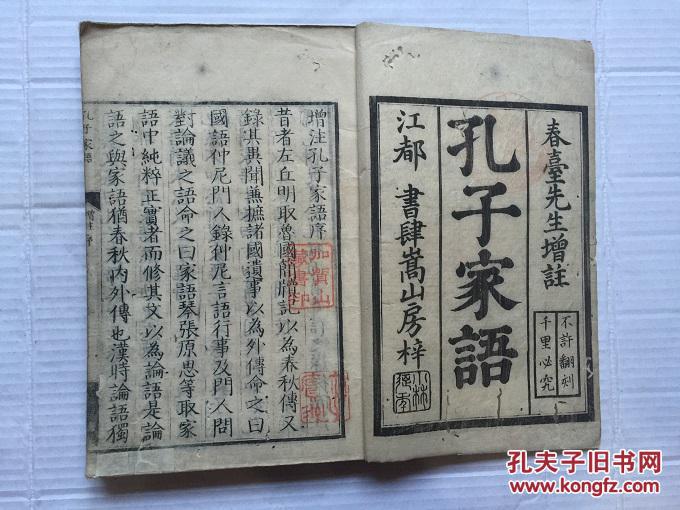 春臺先生增註
不許翻刻
千里必究
孔子家語
江都 書肆嵩山房梓
小林
增注孔子家語序
昔者左丘明取魯國簡牘記以為春秋傳又
錄其異聞兼摭諸國遺事以為外傳命之曰
國語仲尼門人錄仲尼言語行事及門人問
對論議之語命之曰家語琴張原思等取家
語中純粹正實者而修其文以為論語是論
語之與家語猶春秋內外傳也漢時論語獨
孔子家語
增註序
加賀山
藏書印
孔夫子旧书网
www.kongfz.com